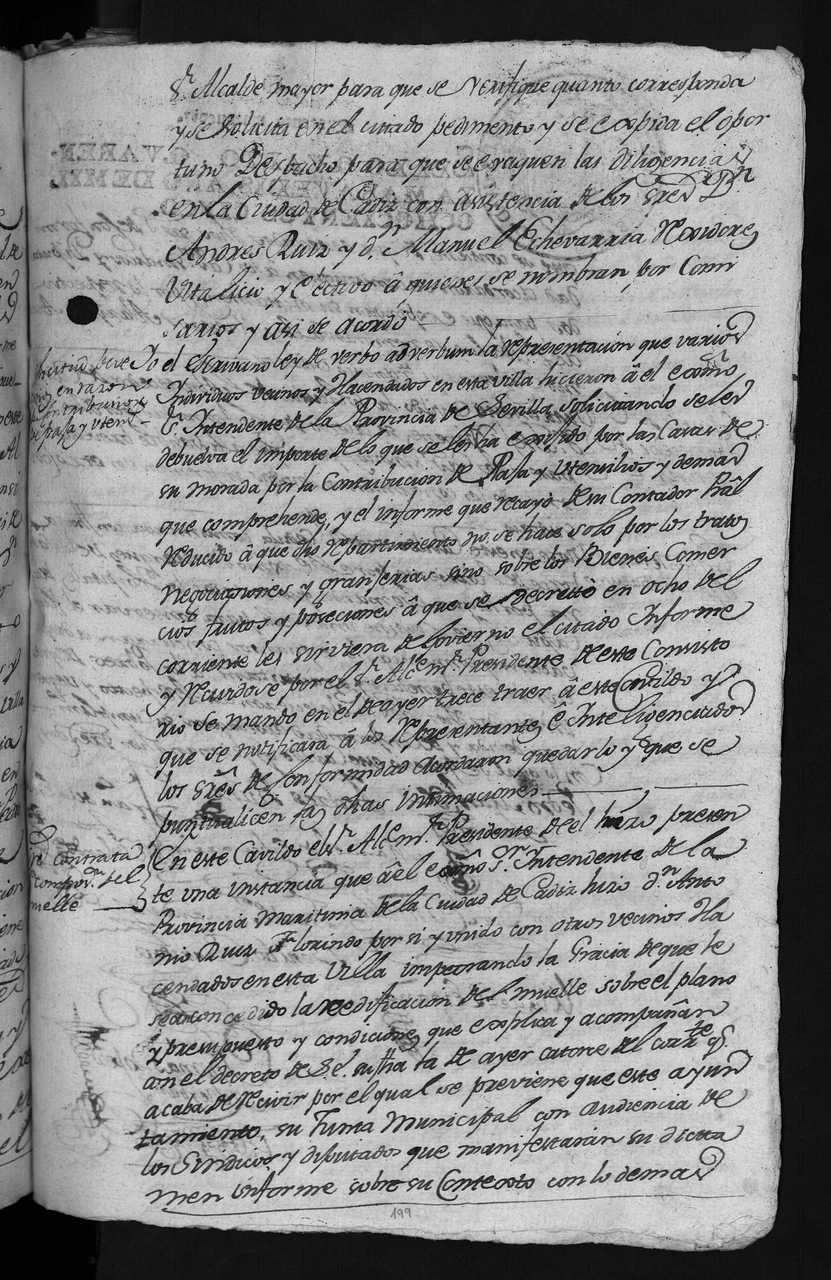 Sr. Alcalde mayor para que se verifique quanto corresponda
y se solicita en el citado pedimento y se expida el opor
tuno Despacho para que se evaquen las diligencias
en la Ciudad de Cadiz con asistencia de los Sres. Dn.
Andres Ruiz y dn. Manuel Echevarria Rexidores
Vitalicio, y electivo â quienes se nombran por Comi
sarios y asi se acordó
Yo el Escrivano ley de verbo ad verbum la representacion que varios
Individuos vecinos y Hacendados en esta villa hicieron âl el exmô.
Sr. Intendente de la Provincia de Sevilla solicitando se les
debuelva el importe de lo que se les ha exîsido por las Casas de
su morada por la Contribucion de Paja y Utensilios y demas
que comprehende, y el informe que recayó de su Contador Prâl
reducido â que dho repartimiento no se hace solo por los tratos
negociaciones y granjerias sino sobre los Bienes Comer
cios, frutos y poseciones â que se decretó en ocho del
corriente les sirviera de govierno el citado Informe
y recurdose por el Sr. Alce. mr. Presidente de este Consisto
rio se mandó en el de ayer trece traer â este Cavildo y
que se notificara â los representantes ê Inteligenciados
los Sres de conformidad acordaron quedarlo y que se
puntualicen las dhas intimaciones
En este Cavildo el Sr. Alce. mr. Presidente de el hizo presen
te una instancia que âl exmô Sr. Intendente de la
Provincia Maritima de la Ciudad de Cadiz hizo dn. Anto
nio Ruiz Florindo por si y unido con otros vecinos Ha
cendados en esta Villa impetrando la Gracia de que le
sea concedido la reedificacion del muelle sobre el plano
y presupuesto y condiciones que explica y acompañan
con el decreto de S.E. su fha la de ayer catorce del corrte. qe.
acaba de recivir por el qual se previene que este ayun
tamiento, su Junta Municipal con audiencia de
los Sindicos y diputados que manifestarán su dicta
men informe sobre su Contexto con lo demas
en razon
contribucion
de paja y utens.
contrata
del
muelle
199